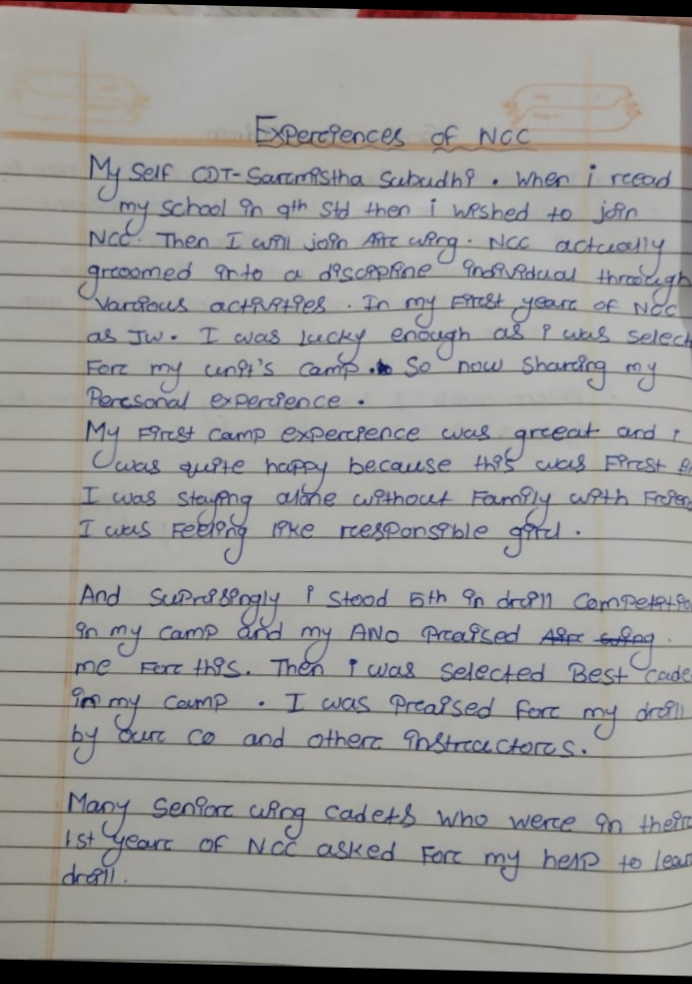 Experiences of NCC
My Self CDT- Sarmistha Subudhi. When i read
my school in 9th std then i wished to join
NCC. Then I will join Air wing. NCC actually
groomed into a discipline individual through
various activities. In my first year of NCC
as JW. I was lucky enough as i was select
For my unit's camp. So now Sharing my
Personal experience.
My First camp experience was great and i
was quite happy because this was First
I was staying alone without Family with
I was Feeling like responsible girl.
And Suprisingly i stood 5th in drill
in my camp and my ANO Praised Air wing.
me For this. Then i was Selected Best cade
in my camp. I was Praised For my drill
by our CO and other instructors.
Many Senior wing cadets who were in their
1st year of NCC asked For my help to lear
drill.